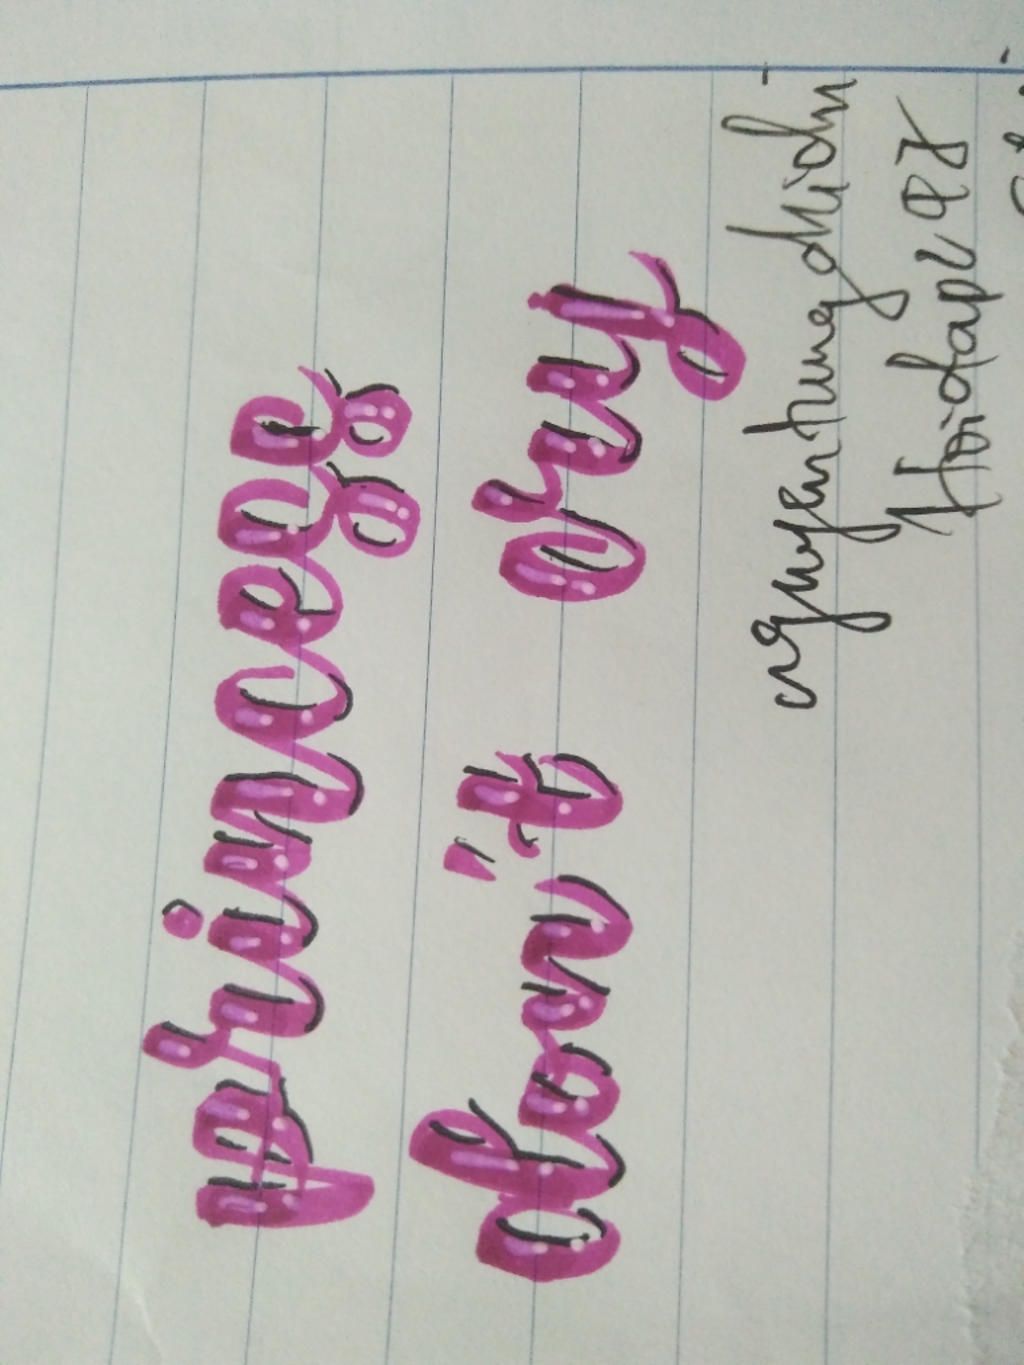 princess
don't cry
nguyentrungdhidhi
Hoidap247